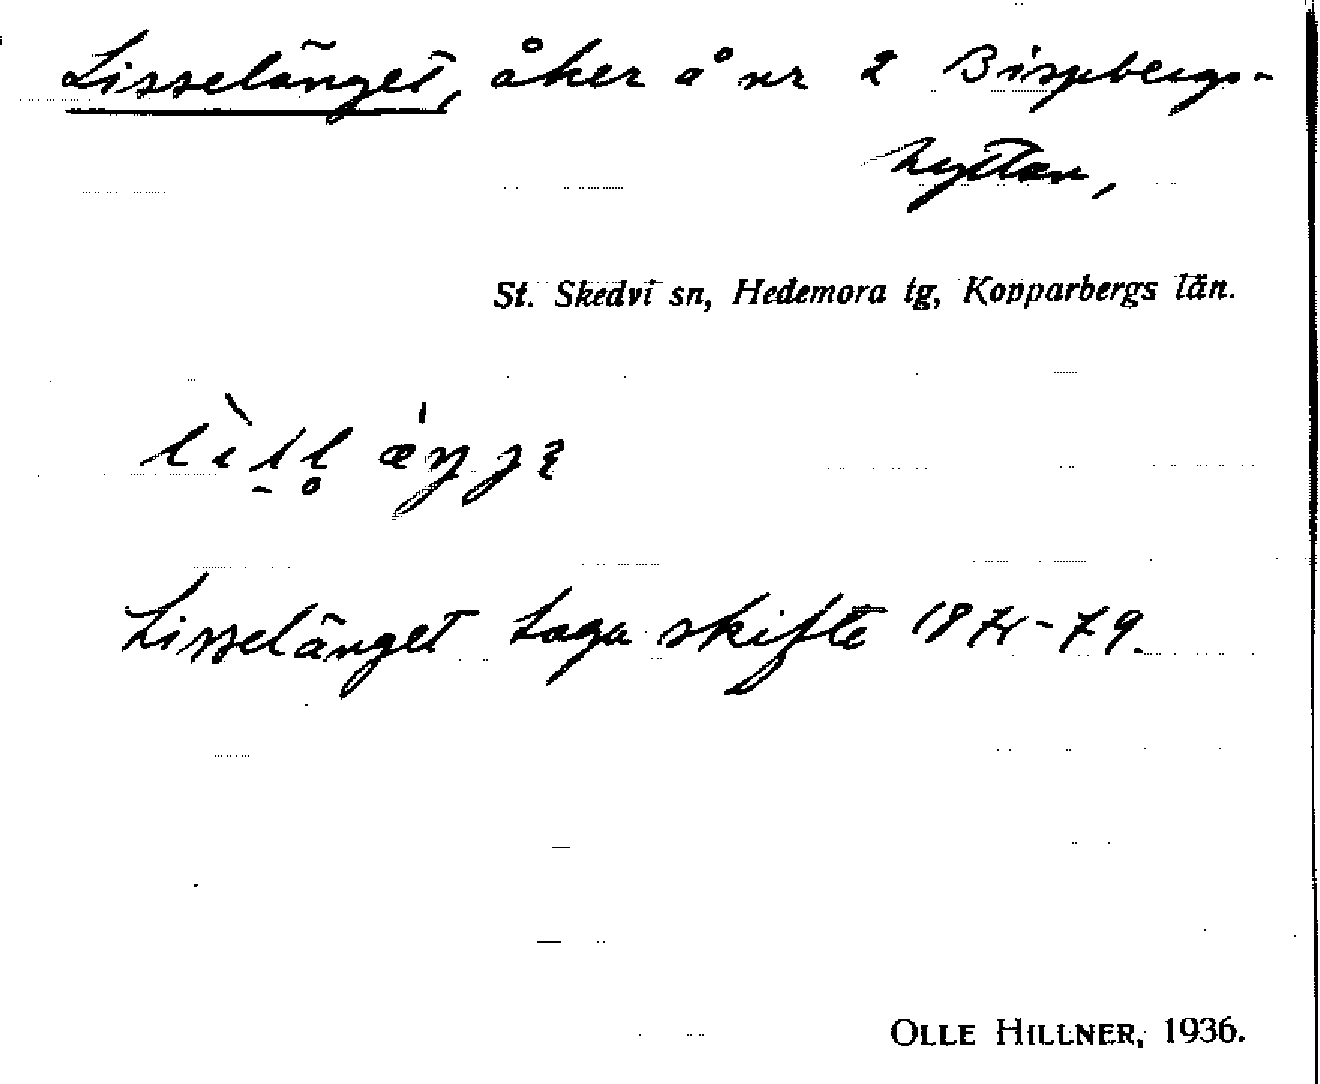 Lisselänget, åker å nr 2 Bispbergs-
hyttan,
St. Skedvi sn, Hedemora tg, Kopparbergs län.
Lisselänget Laga skifte 1874-79.
OLLE HILLNER, 1936.